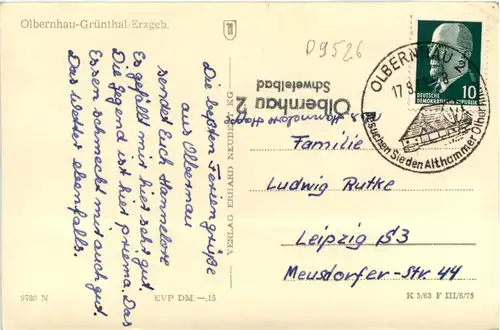 Olbernhau-Grünthal/Erzgeb.
D9526
Die besten Feriengrüße
aus Olbernau
sendet Euch Hannelore
Es gefällt mir hier sehr gut.
Die Gegend ist hier prima. Das
Essen schmeckt mir auch gut.
Das Wetter ebenfalls.
VERLAG ERHARD NEUBERT KG
9780 N
EVP DM –,15
Olbernhau 2
Schwefelbad
OLBERNHAU 2
17.8.
Besuchen Sie den Althammer
10
DEUTSCHE
DEMOKRATISCHE REPUBLIK
Familie
Ludwig Rutke
Leipzig S3
Meusdorfer-Str. 44
K 5/63 F III/6/75